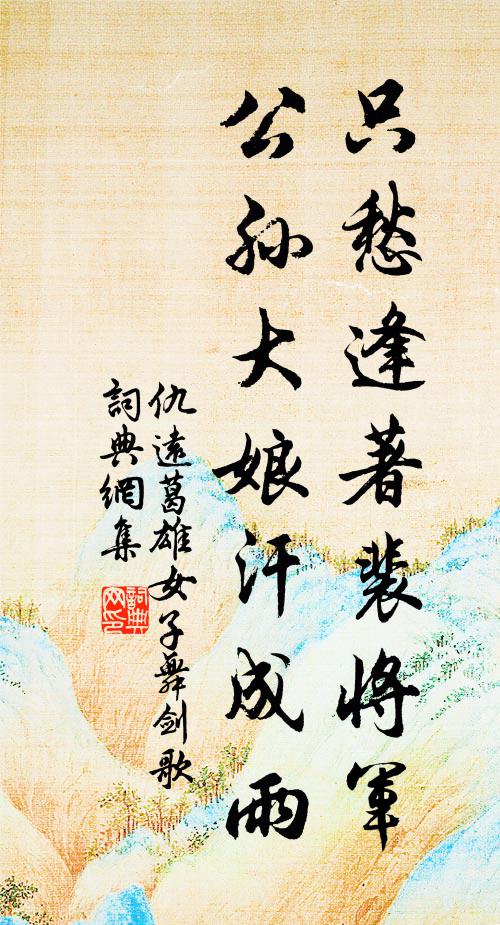 只愁逢著裴將軍
公孙大娘汗成雨
仇遠葛雄女子舞劍歌
詞典網集
詞典
网印